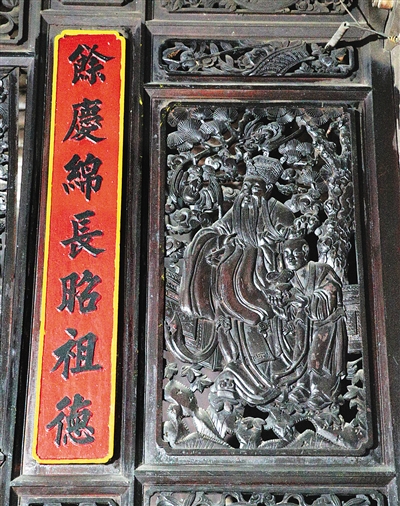 餘慶綿長昭祖德